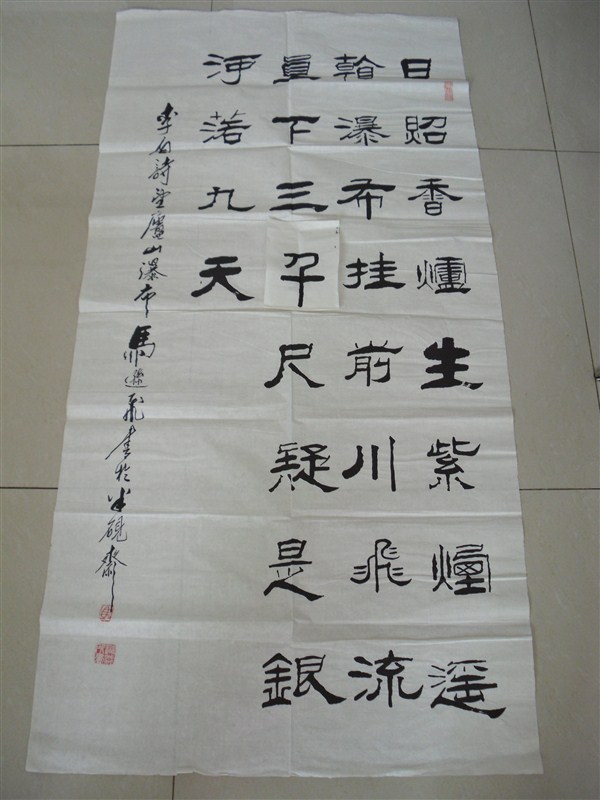 日照香爐生紫煙遥
看瀑布挂前川飛流
直下三千尺疑是銀
河落九天
李白詩望廬山瀑布 馬 飛書於半硯齋